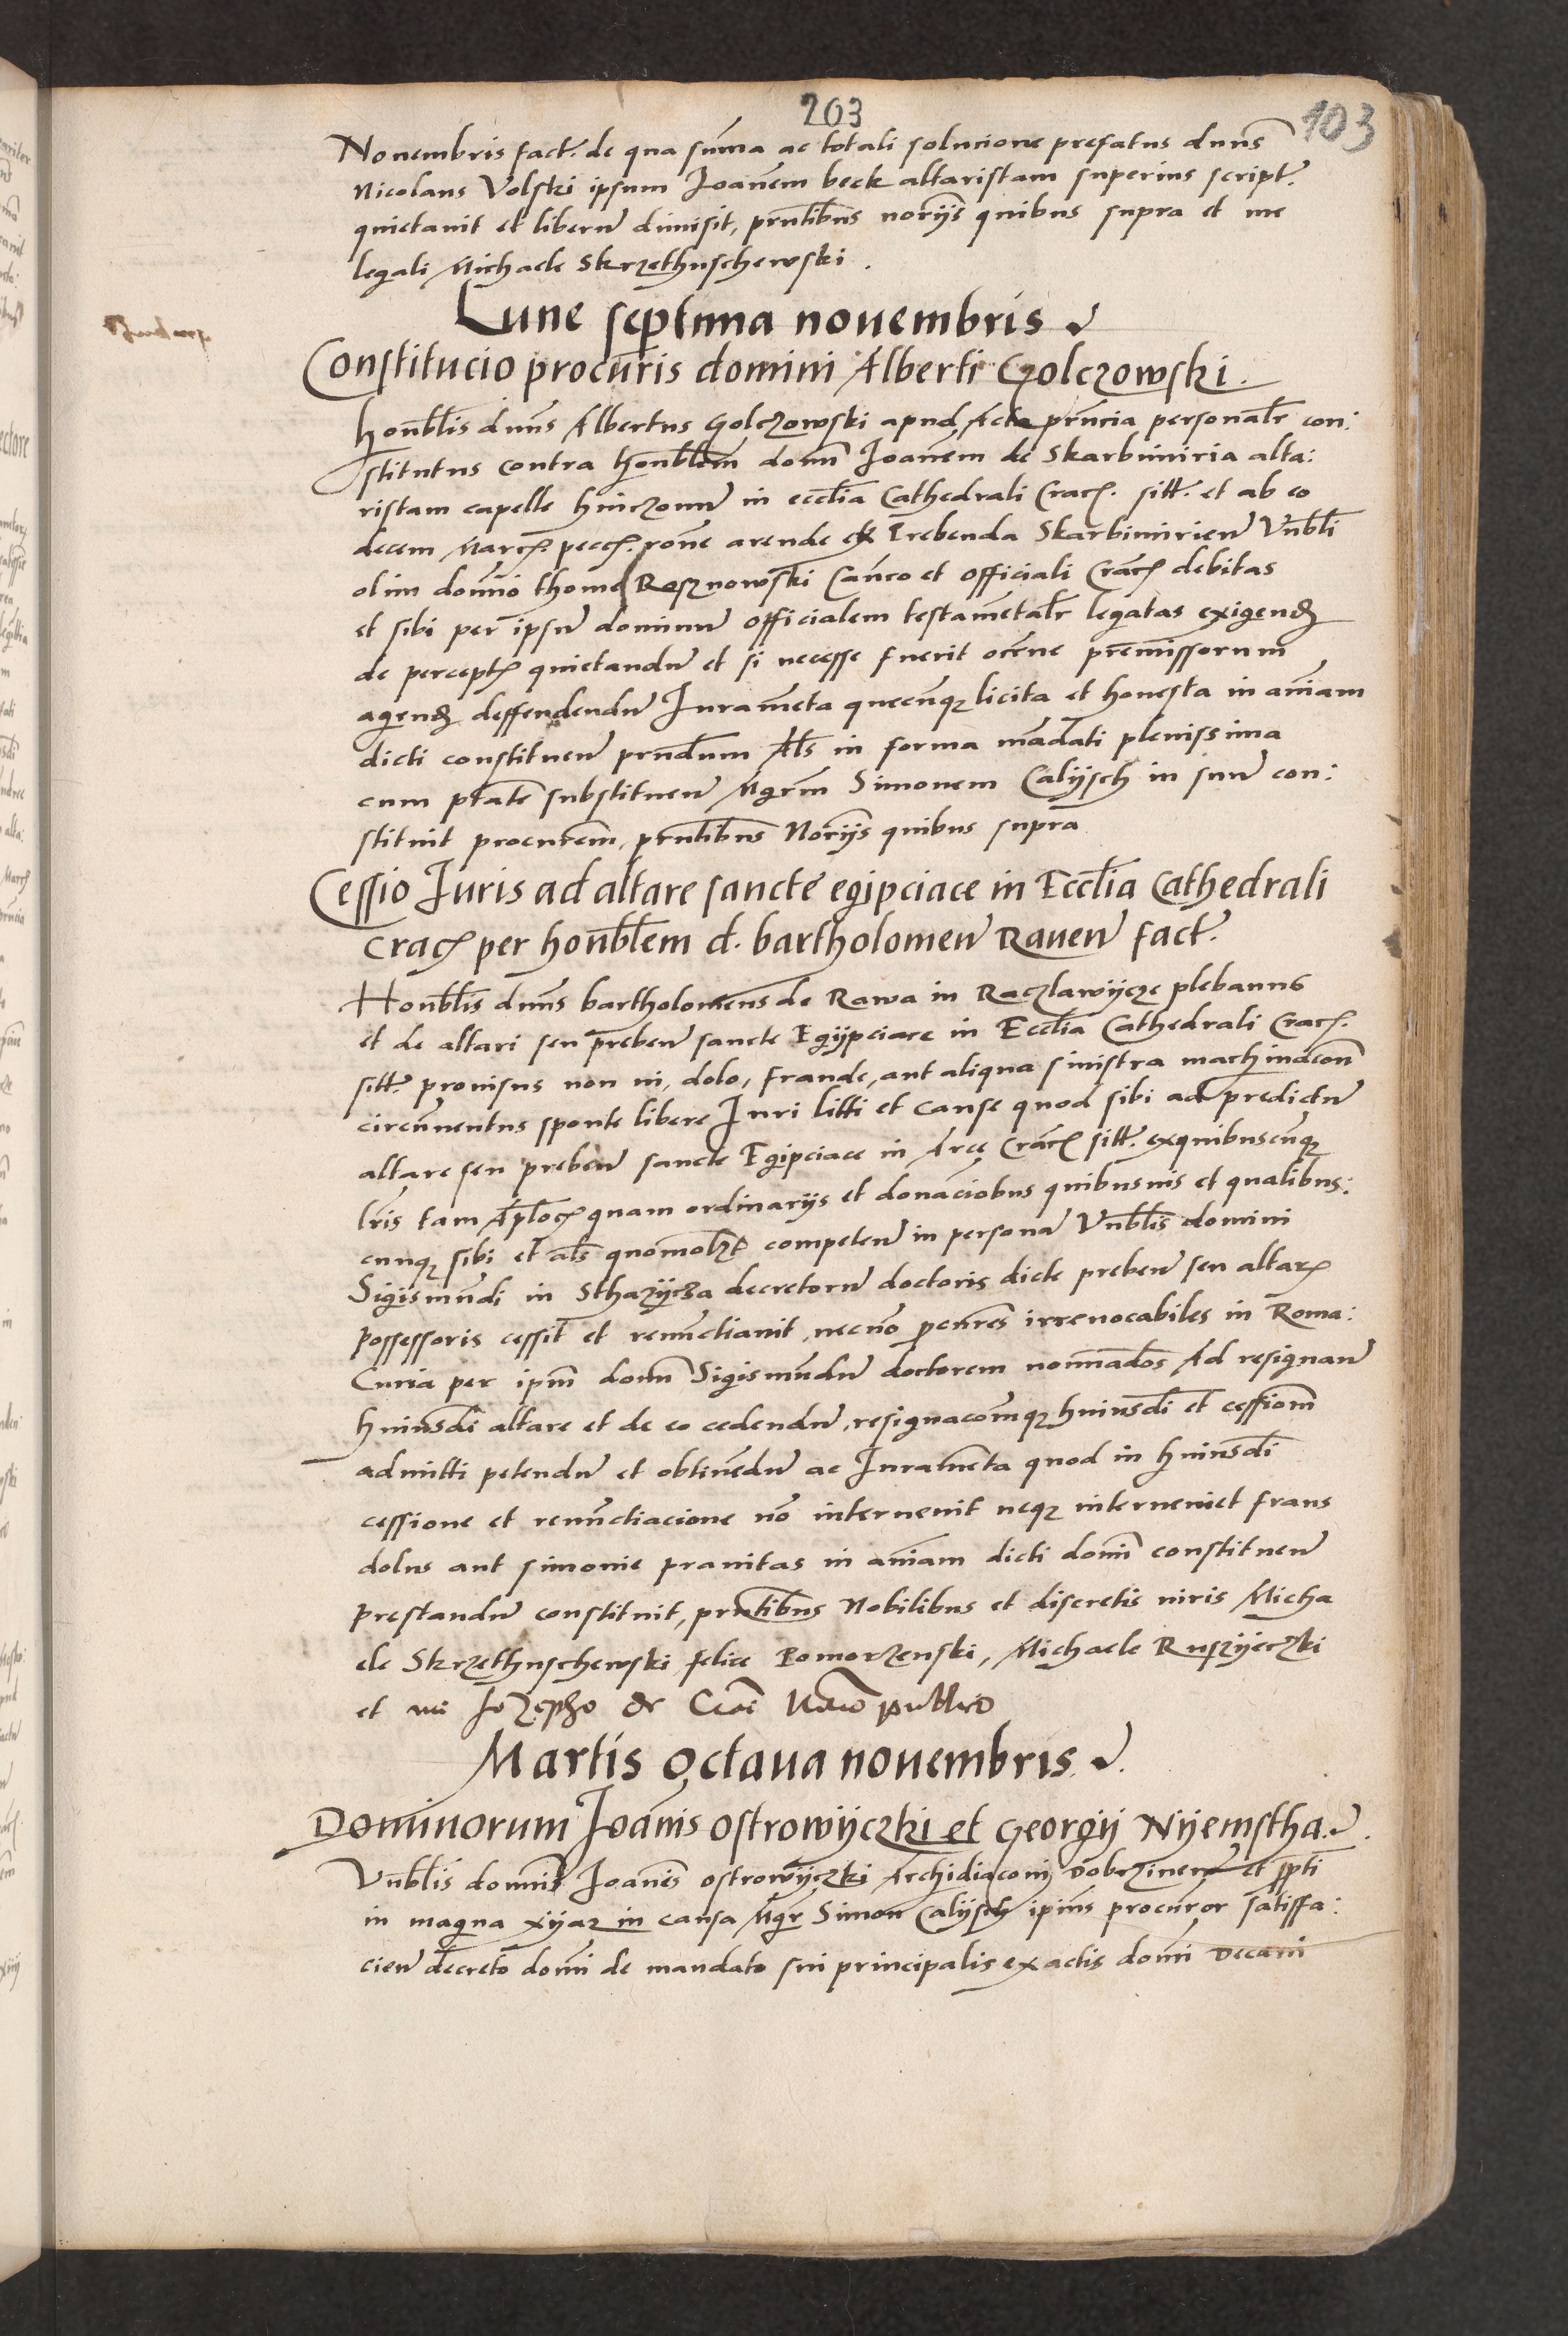 203
103
Nouembris fact. de qua suma ac totali solucione prefatus dnns
Nicolaus Volski ipsum Joanem beck altaristam superius script.
quietauit et liberu dimisit, prntibus noriis quibus supra et me
legali Michaele Skrzethuschewski.
Lune septima nouembris
Constitucio procuris domini Alberti Golczowski.
honblis dnns Albertus Golczowski apud Acta prncia personalr con:
stitutus contra honblem domn Joanem de Skarbimiria alta:
ristam capelle hinczonu in ecclia Cathedrali Crac. sitt. et ab eo
decem Marc. pecc. rone arende ex Prebenda Skarbimirien Vnbli
olim domno thome Roznowski Canco et officiali Crac debitas
et sibi per ipsu dominu officialem testametalr legatas exigend
de percept quietandu et si necesse fuerit ocne premissorum
agend deffendendu Jurameta quecunq licita et honesta in aniam
dicti constituen prndum Als in forma madati plenissima
cum ptate substituen Mgrm Simonem Calijsch in suu con:
stituit procurem, prntibus Norijs quibus supra
Cessio Juris ad altare sancte egipciace in Ecclia Cathedrali
Crac per honblem d. bartholomeu Rauen fact.
Honblis dnns bartholomeus de Rawa in Raczlawijcze plebanus
et de altari seu preben sancte Egijpciace in Ecclia Cathedrali Crac.
sitt. prouisus non ui, dolo, fraude, aut aliqua sinistra machinacon
circuuentus sponte libere Juri litti et cause quod sibi ad predictu
altare seu preben sancte Egipciace in Arce Crac sitt. exquibuscunq
lris tam Aploc quam ordinarijs et donaciobus quibusuis et qualibus:
cunq sibi et als quomolzt competen in persona Vnblis domini
Sigismundi in Sthazijcza decretoru doctoris dicte preben seu altar
possessoris cessit et renunctiauit, necno pcures irreuocabiles in Roma:
Curia per ipm domn Sigismundu doctorem nominados Ad resignan
huiusdi altare et de eo cedendu, resignaconmq huiusdi et cessionm
admitti petendu et obtinedu ac Jurameta quod in huiusdi
cessione et renunctiacione no interuenit neq interueniet fraus
dolus aut simonie prauitas in aniam dicti domi constituen
prestandu constituit, prntibus Nobilibus et discretis uiris Micha
ele Skrzethuschewski felice Pomorzenski, Michaele Ruszijeczki
et me Jozepho de publico
Martis Octaua nouembris
Dominorum Joanis Ostrowijczki et Georgij Nijemstha.
Vnblis domni Joanes Ostrowijczki Archidiaconi Dobrzinen et
in magna xijar in causa Mgr Simon Calijsch ipius procuror satisffa:
cien decreto domi de mandato sui principalis ex actis domi Decani